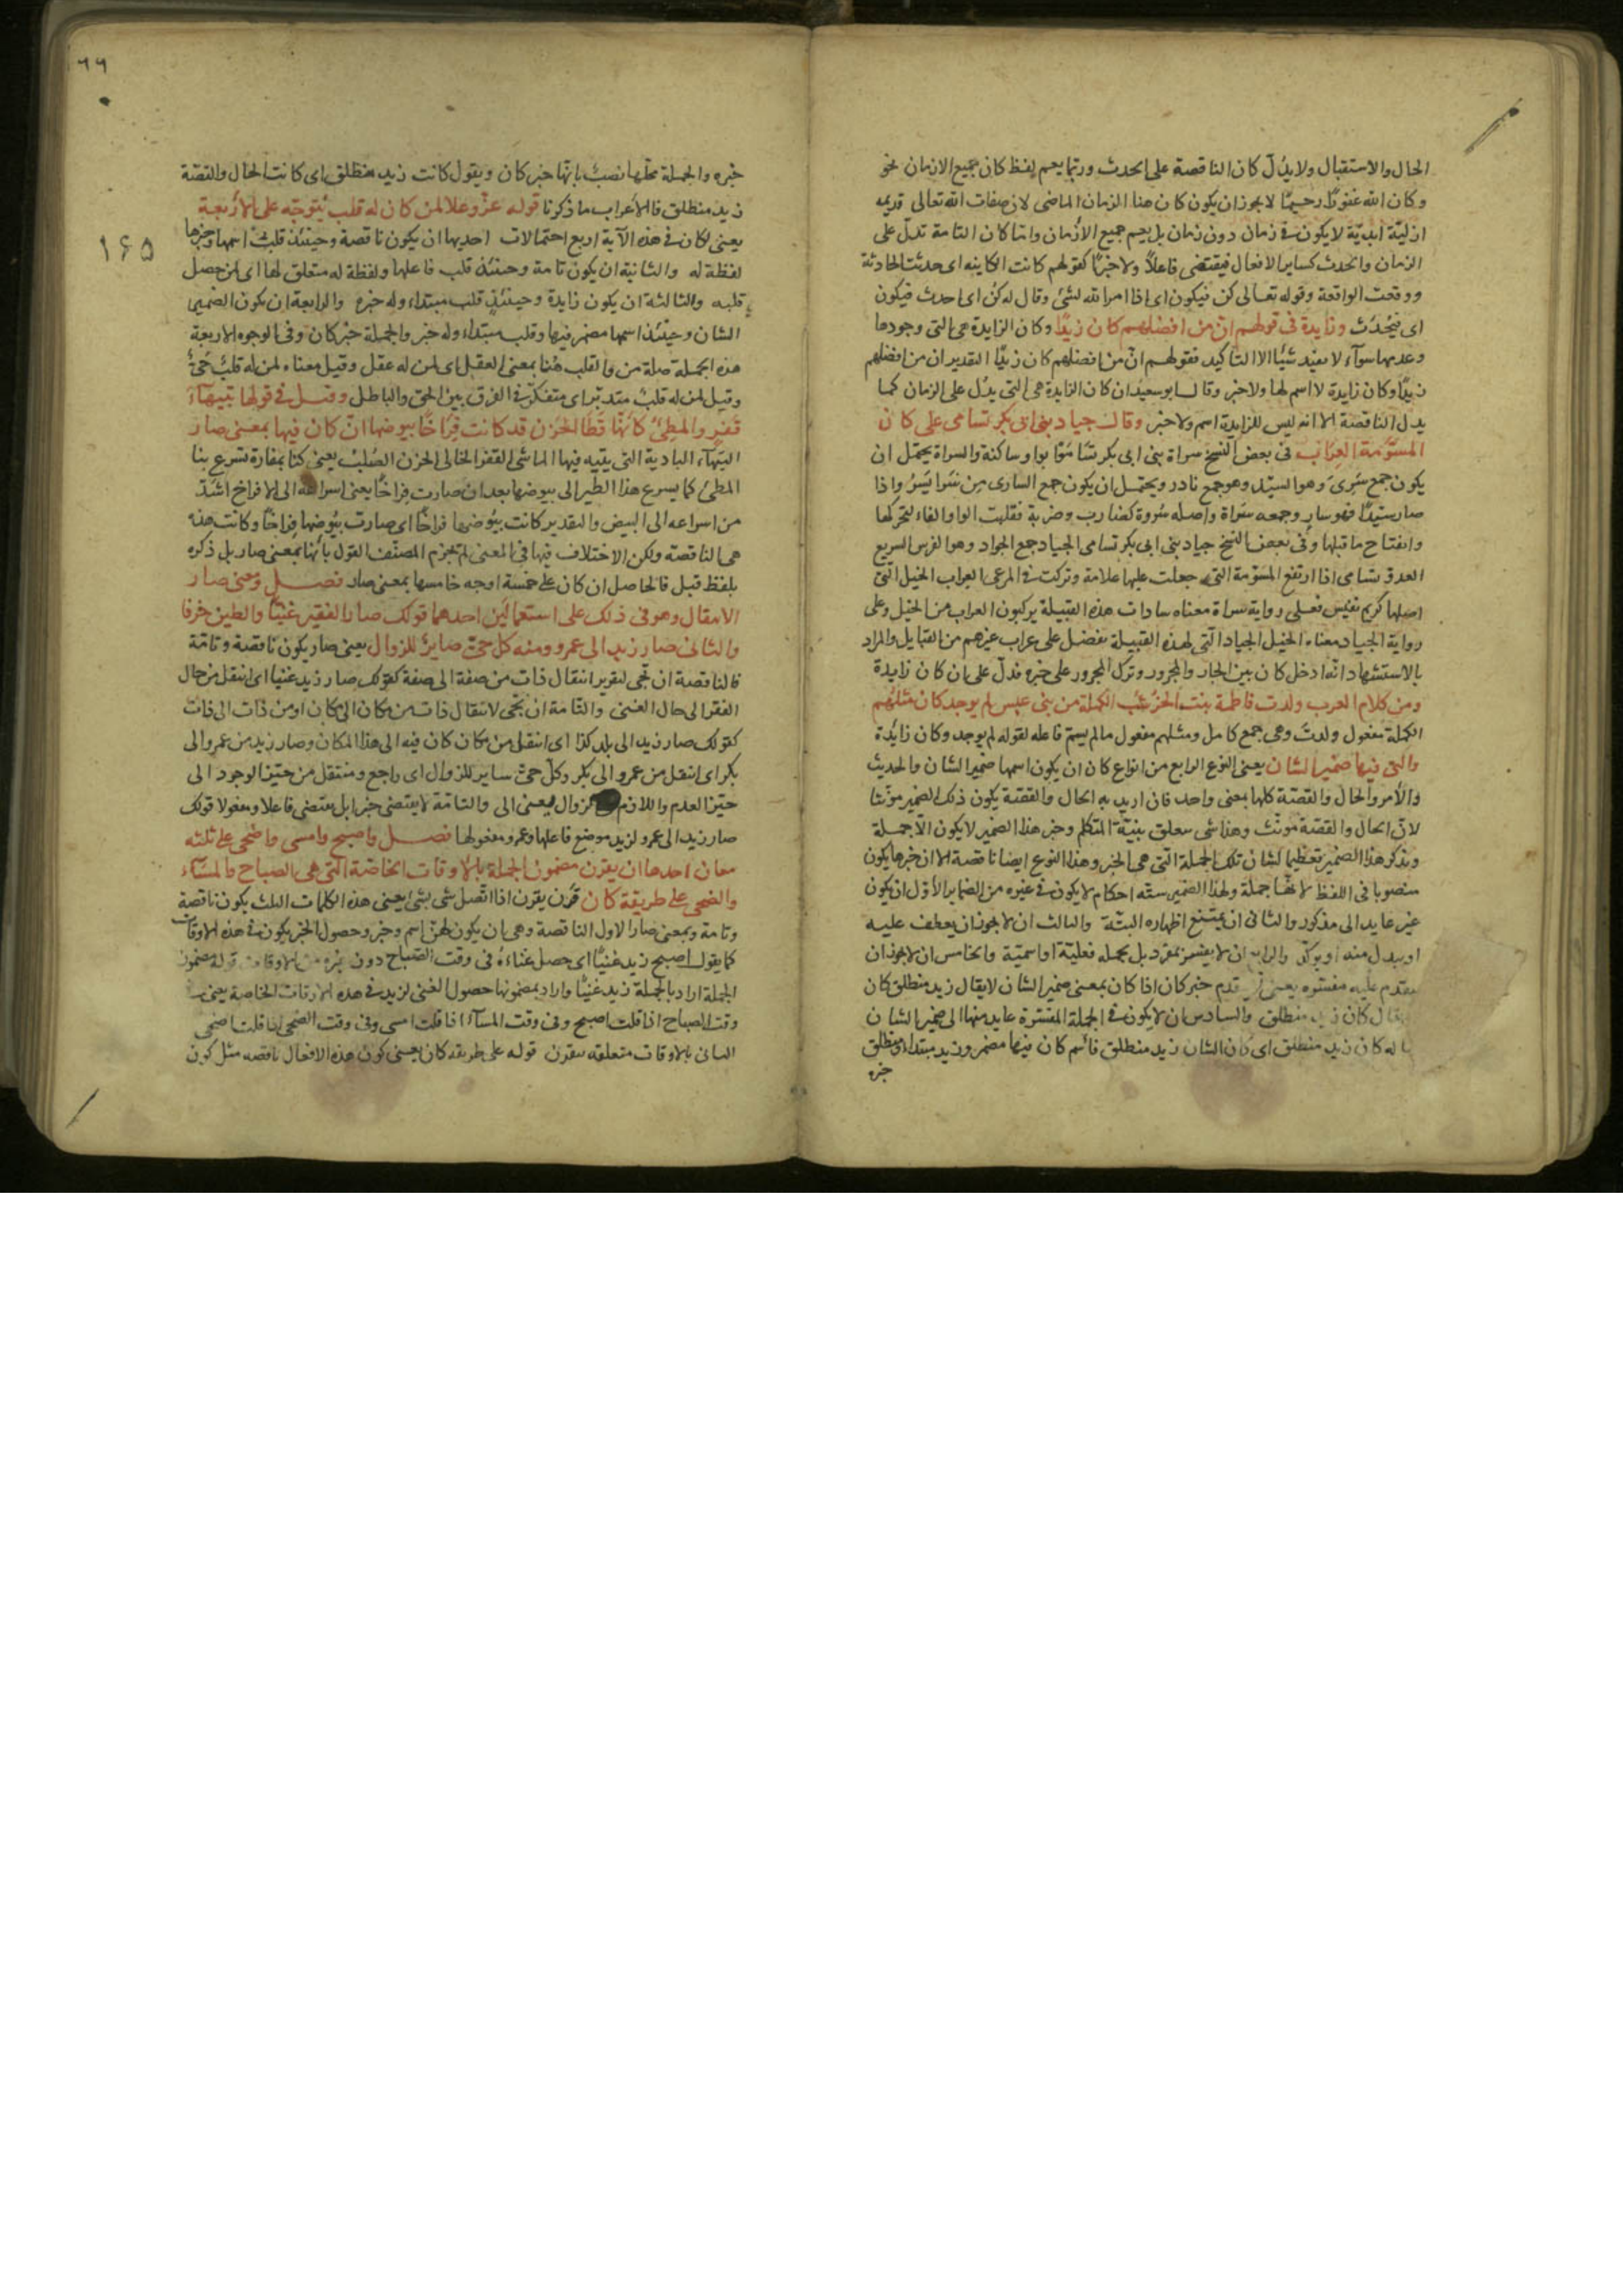 الحال والاستقبال ولا يدلّ كان الناقصة على الحدث وربّما يعم لفظ كان جميع الازمان نحو
وكان الله غفورًا رحيمًا لا يجوز ان يكون كان هنا الزمان الماضى لان صفات الله تعالى قديمه
ازليّة ابديّة لا يكون فى زمان دون زمان بل يعم جميع الأزمان وامّا كان التامة تدلّ على
الزمان والحدث كساير الافعال فيقتضى فاعلاً ولا خبرًا كقولهم كانت الكاينه اى حدثت الحادثة
ووقعت الواقعة وقوله تعالى كن فيكون اى اذا امر الله لشئ وقال له كن اى احدث فيكون
اى فيحدث وزايدة فى قولهم انّ من افضلهم كان زيدًا وكان الزايدة هى التى وجودها
وعدمها سوآء لا يفيد شيئًا الا التأكيد فقولهم انّ من افضلهم كان زيدًا التقدير ان من افضلهم
زيدًا وكان زايدة لا اسم لها ولا خبر وقال ابو سعيد ان كان الزايدة هى التى يدل على الزمان كما
يدل الناقصة الا انه ليس للزايدة اسم ولا خبر وقال جياد بنى ابى بكر تسامى على كان
المسوّمة العِراب فى بعض النسخ سراة بنى ابى بكر تسامَوا بواو ساكنة والسراة يحتمل ان
يكون جمع سَرِىّ وهو السيّد وهو جمع نادر ويحتمل ان يكون جمع السارى من سَرا يَسرُو اذا
صار سيّدًا فهو سار وجمعه سراة واصله سروة كضارب وضربة فقلبت الواو الفاء لتحركها
وانفتاح ما قبلها وفى بعض النسخ جياد بنى ابى بكر تسامى الجياد جمع الجواد وهو الفرس السريع
العدو تسامى اذا ارتفع المسوّمة التى جعلت عليها علامة وتركت فى المرعى العراب الخيل التى
اصلها كريم نفيس فعلى رواية سراة معناه سادات هذه القبيلة يركبون العراب من الخيل وعلى
رواية الجياد معناه الخيل الجياد التى لهذه القبيلة تفضل على عراب غيرهم من القبايل والمراد
بالاستشهاد انّه ادخل كان بين الجار والمجرور وترك المجرور على جره فدلّ على ان كان زايدة
ومن كلام العرب ولدت فاطمة بنت الخرشب الكملة من بنى عبس لم يوجد كان مثلهم
الكملة مفعول ولدت وهى جمع كامل ومثلهم مفعول ما لم يسمّ فاعله لقوله لم يوجد وكان زائدة
والتى فيها ضمير الشان يعنى النوع الرابع من انواع كان ان يكون اسمها ضمير الشان والحديث
والأمر والحال والقصّة كلها بمعنى واحد فان اريد به الحال والقصّة يكون ذلك الضمير مؤنثا
لانّ الحال والقصّة مونّث وهذا شى يتعلق بنيّة المتكلم وخبر هذا الضمير لا يكون الّا جملة
ويذكر هذا الضمير تعظيما لشان تلك الجملة التى هى الخبر وهذا النوع ايضا ناقصة الا ان خبرها يكون
منصوبا فى اللفظ لانّها جملة ولهذا الضمير ستّه احكام لا يكون فى غيره من الضماير الأوّل ان يكون
غير عايد الى مذكور والثانى ان يمتنع اظهاره البتّة والثالث ان لا يجوز ان يعطف عليه
او يبدل منه او يوكّد والرابع ان لا يفسّر بمفرد بل بجمله فعليّة او اسميّة والخامس ان لا يجوز ان
يتقدم عليه مفسّره يعنى تقدم خبر كان اذا كان بمعنى ضمير الشان لا يقال زيد منطلق كان
يقال كان زيد منطلق والسادس ان لا يكون فى الجملة المفسّرة عايد منها الى ضمير الشان
له كان زيد منطلق اى كان الشان زيد منطلق فاسم كان فيها مضمر وزيد مبتداء ومنطلق
خبره
٦٦
١٦٥
خبره والجملة محلّها نصب بانّها خبر كان ويقول كانت زيد منطلق اى كانت الحال والقصّة
زيد منطلق فالأعراب ما ذكرنا قوله عزّ وعلا لمن كان له قلب يتوجّه على الأربعة
يعنى لكان فى هذه الآية اربع احتمالات احديها ان يكون ناقصة وحينئذ قلبٌ اسمها وخبرها
لفظة له والثانية ان يكون تامة وحينئذ قلب فاعلها ولفظة له متعلق لها اى لمن حصل
قلبه والثالثة ان يكون زايدة وحينئذٍ قلب مبتداء وله خبره والرابعة ان يكون الضمير
الشان وحينئذ اسمها مضمر فيها وقلب مبتداء وله خبر والجملة خبر كان وفى الوجوه الاربعة
هذه الجملة صلة من والقلب هُنا بمعنى العقل اى لمن له عقل وقيل معناه لمن له قلبٌ حىٌّ
وقيل لمن له قلبٌ متدبّر اى متفكّر فى الفرق بين الحق والباطل وقيل فى قولها بتيهآء
قَفرٍ والمطىّ كأنّها قَطَا الحَزن قد كانت فِرَاخًا بيوضها انّ كان فيها بمعنى صار
التيهآء البادية التى يتيه فيها الماشى القفر الخالى الحزن الصُلب يعنى كنّا بمفازة تسرع بنا
المطى كما يسرع هذا الطير الى بيوضها بعد ان صارت فراخًا يعنى اسراعه الى الافراخ اشدّ
من اسراعه الى البيض والتقدير كانت بيُوضها فراخًا اى صارت بيُوضها فِراخًا وكانت هذه
هى الناقصه ولكن الاختلاف فيها فى المعنى لم يجزم المصنّف القول بأنّها بمعنى صار بل ذكره
بلفظ قيل فالحاصل ان كان على خمسة اوجه خامسها بمعنى صار فصل ومعنى صار
الانتقال وهو فى ذلك على استعمالَين احدهما قولك صار الفقير غنيًّا والطين خزفا
والثانى صار زيد الى عمرو ومنه كل حىّ صايرٌ للزوال يعنى صار يكون ناقصة وتامّة
فالناقصة ان تجى لتقرير انتقال ذات من صفة الى صفة كقولك صار زيد غنيا اى انتقل من حال
الفقر الى حال الغنى والتّامة ان تجى لانتقال ذات من مكان الى مكان او من ذات الى ذات
كقولك صار زيد الى بلد كذا اى انتقل من مكان كان فيه الى هذا المكان وصار زيد من عمرو الى
بكر اى انتقل من عمرو الى بكر وكلّ حىّ ساير للزوال اى راجع ومنتقل من حيّز الوجود الى
حيّز العدم واللام للزوال بمعنى الى والتامّة لا يقتضى خبرا بل يقتضى فاعلا ومفعولا قولك
صار زيد الى عمرو لزيد موضع فاعلها وعمرو مفعولها فصل واصبح وامسى واضحى على ثلثه
معان احدها ان يقرن مضمون الجملة بالأوقات الخاصّة التى هى الصباح والمسآء
والضحى على طريقة كان قرَن يقرن اذا اتّصل شى بشئ يعنى هذه الكلمات الثلث يكون ناقصة
وتامة وبمعنى صار الاول الناقصة وهى ان يكون لهنّ اسم وخبر وحصول الخبر يكون فى هذه الاوقات
كما يقول اصبح زيد غنيًّا اى حصل غناءهُ فى وقت الصّباح دون غيره من الاوقات قوله مضمون
الجملة اراد بالجملة زيد غنيًّا واراد بمضمونها حصول الغنى لزيد فى هذه الاوقات الخاصة يعنى
وقت الصباح اذا قلت اصبح وفى وقت المسآء اذا قلت امسى وفى وقت الضحى اذا قلت اضحى
بالاوقات متعلقه بيقرن قوله على طريقه كان يعنى كون هذه الافعال ناقصه مثل كون